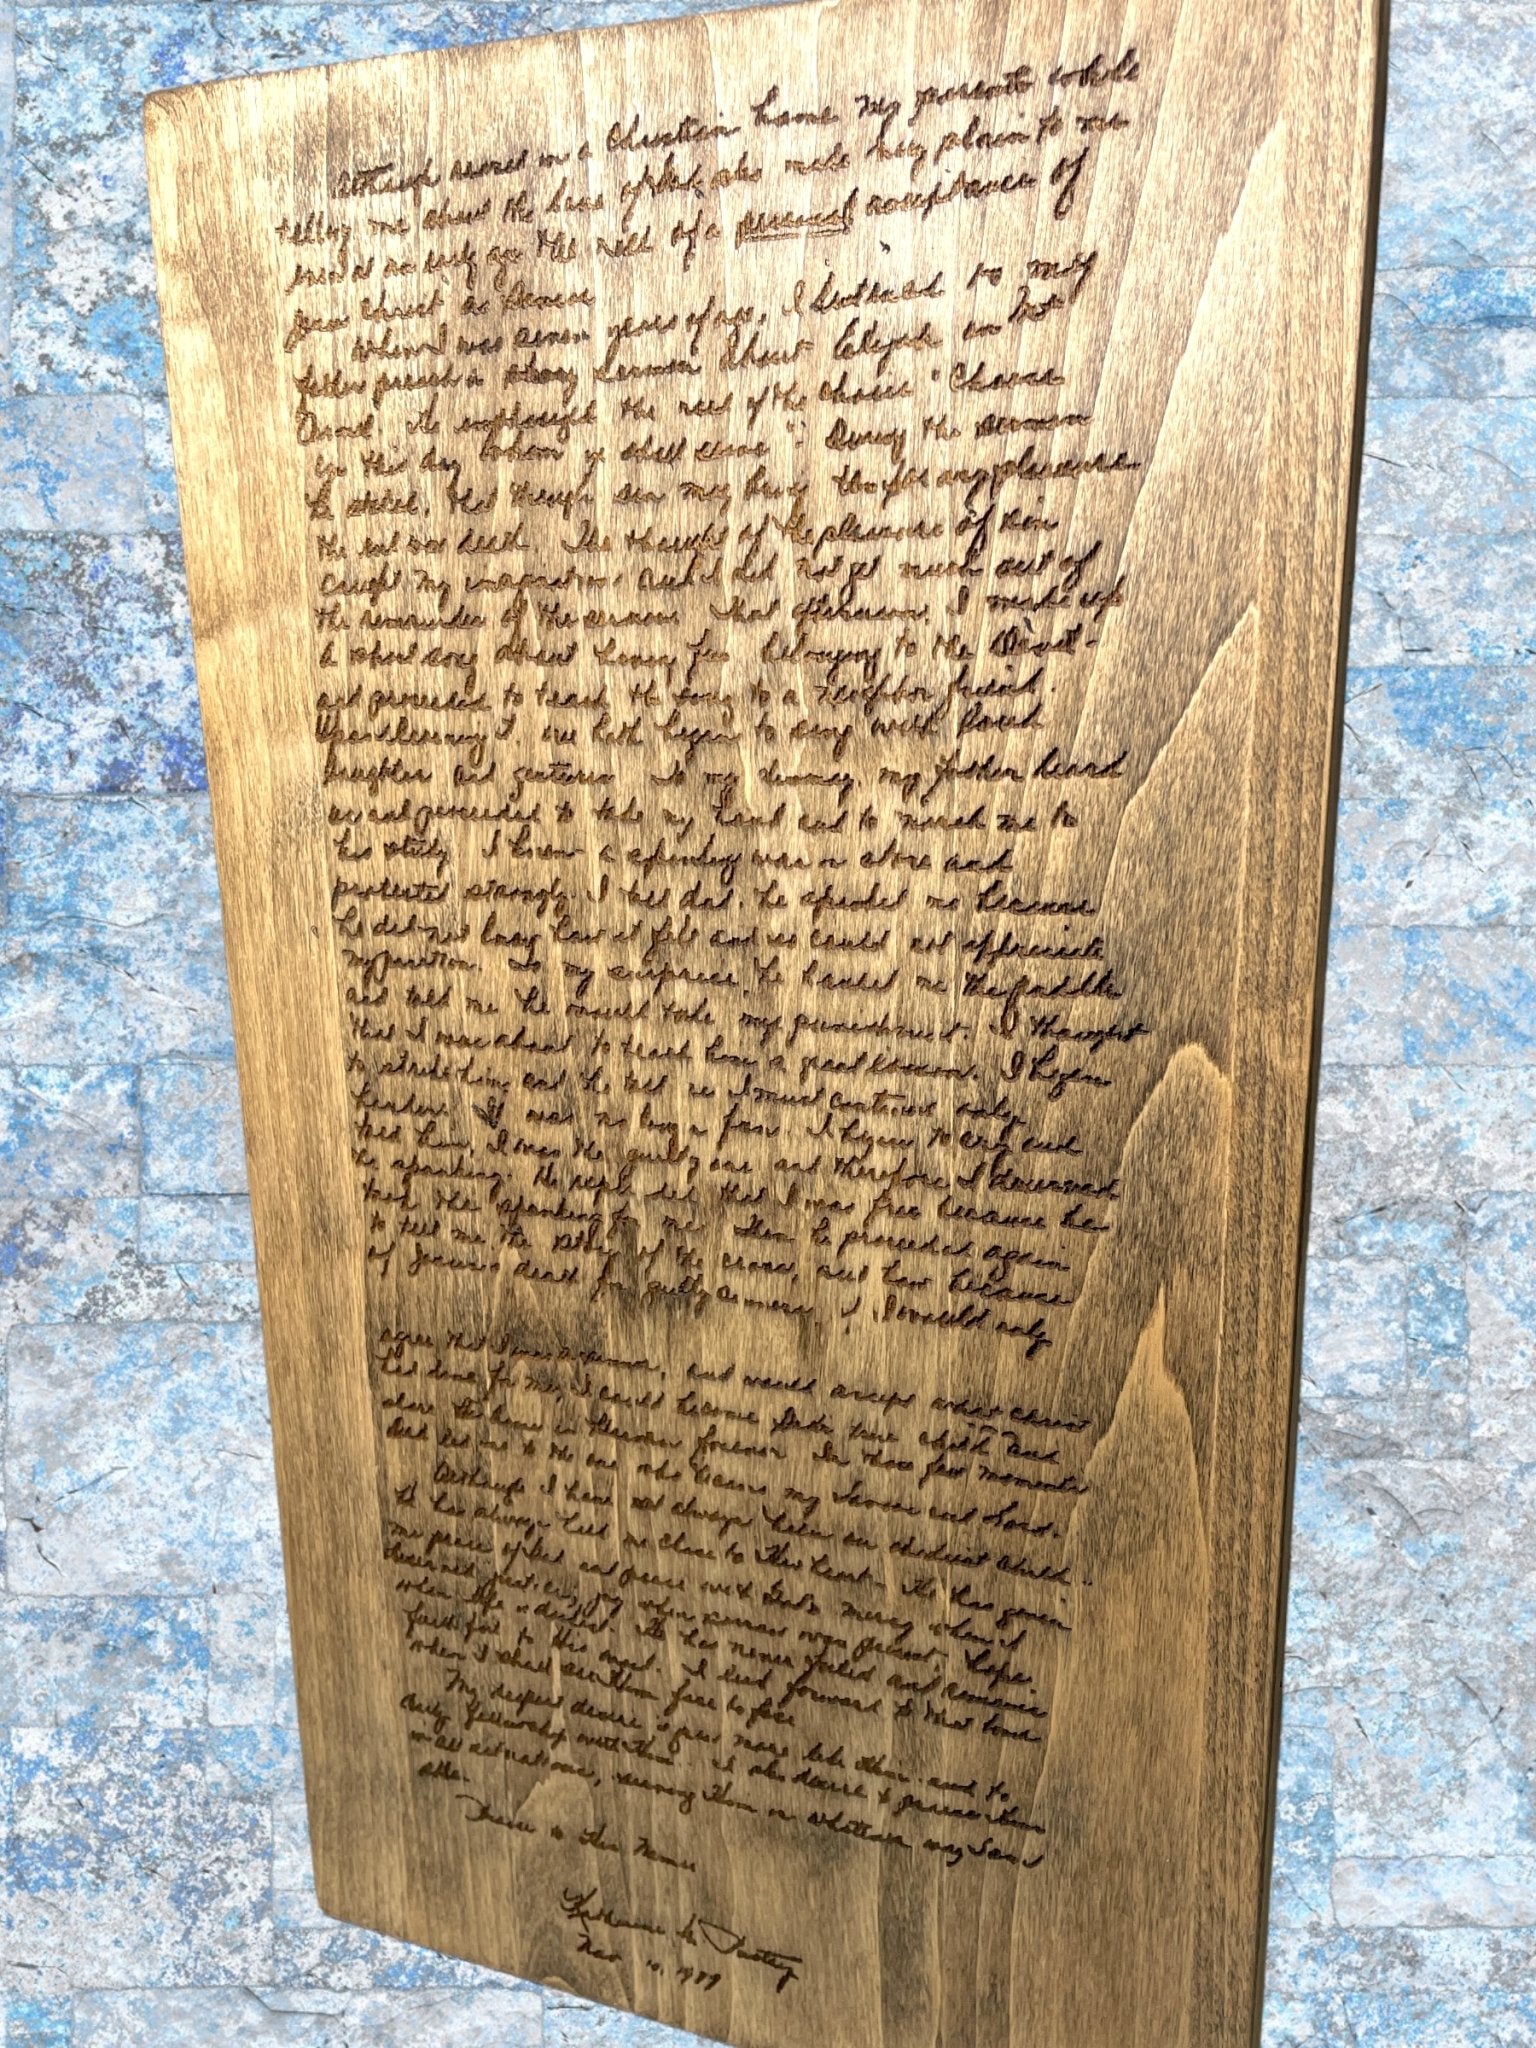 Although reared in a Christian home my parents while
telling me about the love of God, also made very plain to me
even at an early age the need of a personal acceptance of
Jesus Christ as Savior
When I was seven years of age, I listened to my
father preach a strong sermon about Elijah on Mt
Carmel. He emphasized the need of the choice "Choose
ye this day whom ye shall serve". During the sermon
he stated, that though sin may bring temporary pleasure
the end was death. The thought of the pleasure of sin
caught my imagination and I did not get much out of
the remainder of the sermon. That afternoon, I made up
a short song about having fun belonging to the Devil -
and proceeded to teach the song to a neighbor friend.
Upon learning it, we both began to sing with loud
laughter and gestures. To my dismay, my father heard
us and proceeded to take my hand and to march me to
his study. I knew a spanking was in store and
protested strongly. I told dad, he spanked me because
he did not know how it felt and so could not appreciate
my position. To my surprise, he handed me the paddle
and told me he would take my punishment. I thought
that I was about to teach him a great lesson. I began
to strike him, and he told me I must continue only
harder. It was no longer fun. I began to cry and
told him, I was the guilty one and therefore I deserved
the spanking. He replied that I was free because he
took the spanking for me. Then he proceeded again
to tell me the story of the cross, and how because
of Jesus's death for guilty sinners, if I would only
agree that I was a sinner, and would accept what Christ
had done for me, I could become God's true child and
share His home in Heaven forever. In those few moments
dad led me to the one who became my Savior and Lord.
Although I have not always been an obedient child..
He has always held me close to His heart. He has given
me peace of God and peace with God, mercy when I
deserved justice, joy when sorrow was present, hope
when life is darkest. He has never failed and remains
faithful to His word. I look forward to that time
when I shall see Him face to face
My deepest desire is grow more like Him and to
daily fellowship with Him. I also desire to praise Him
in all situations, serving Him in whatever way I am
able.
Praise to His Name
Katherine
Nov 10, 1989